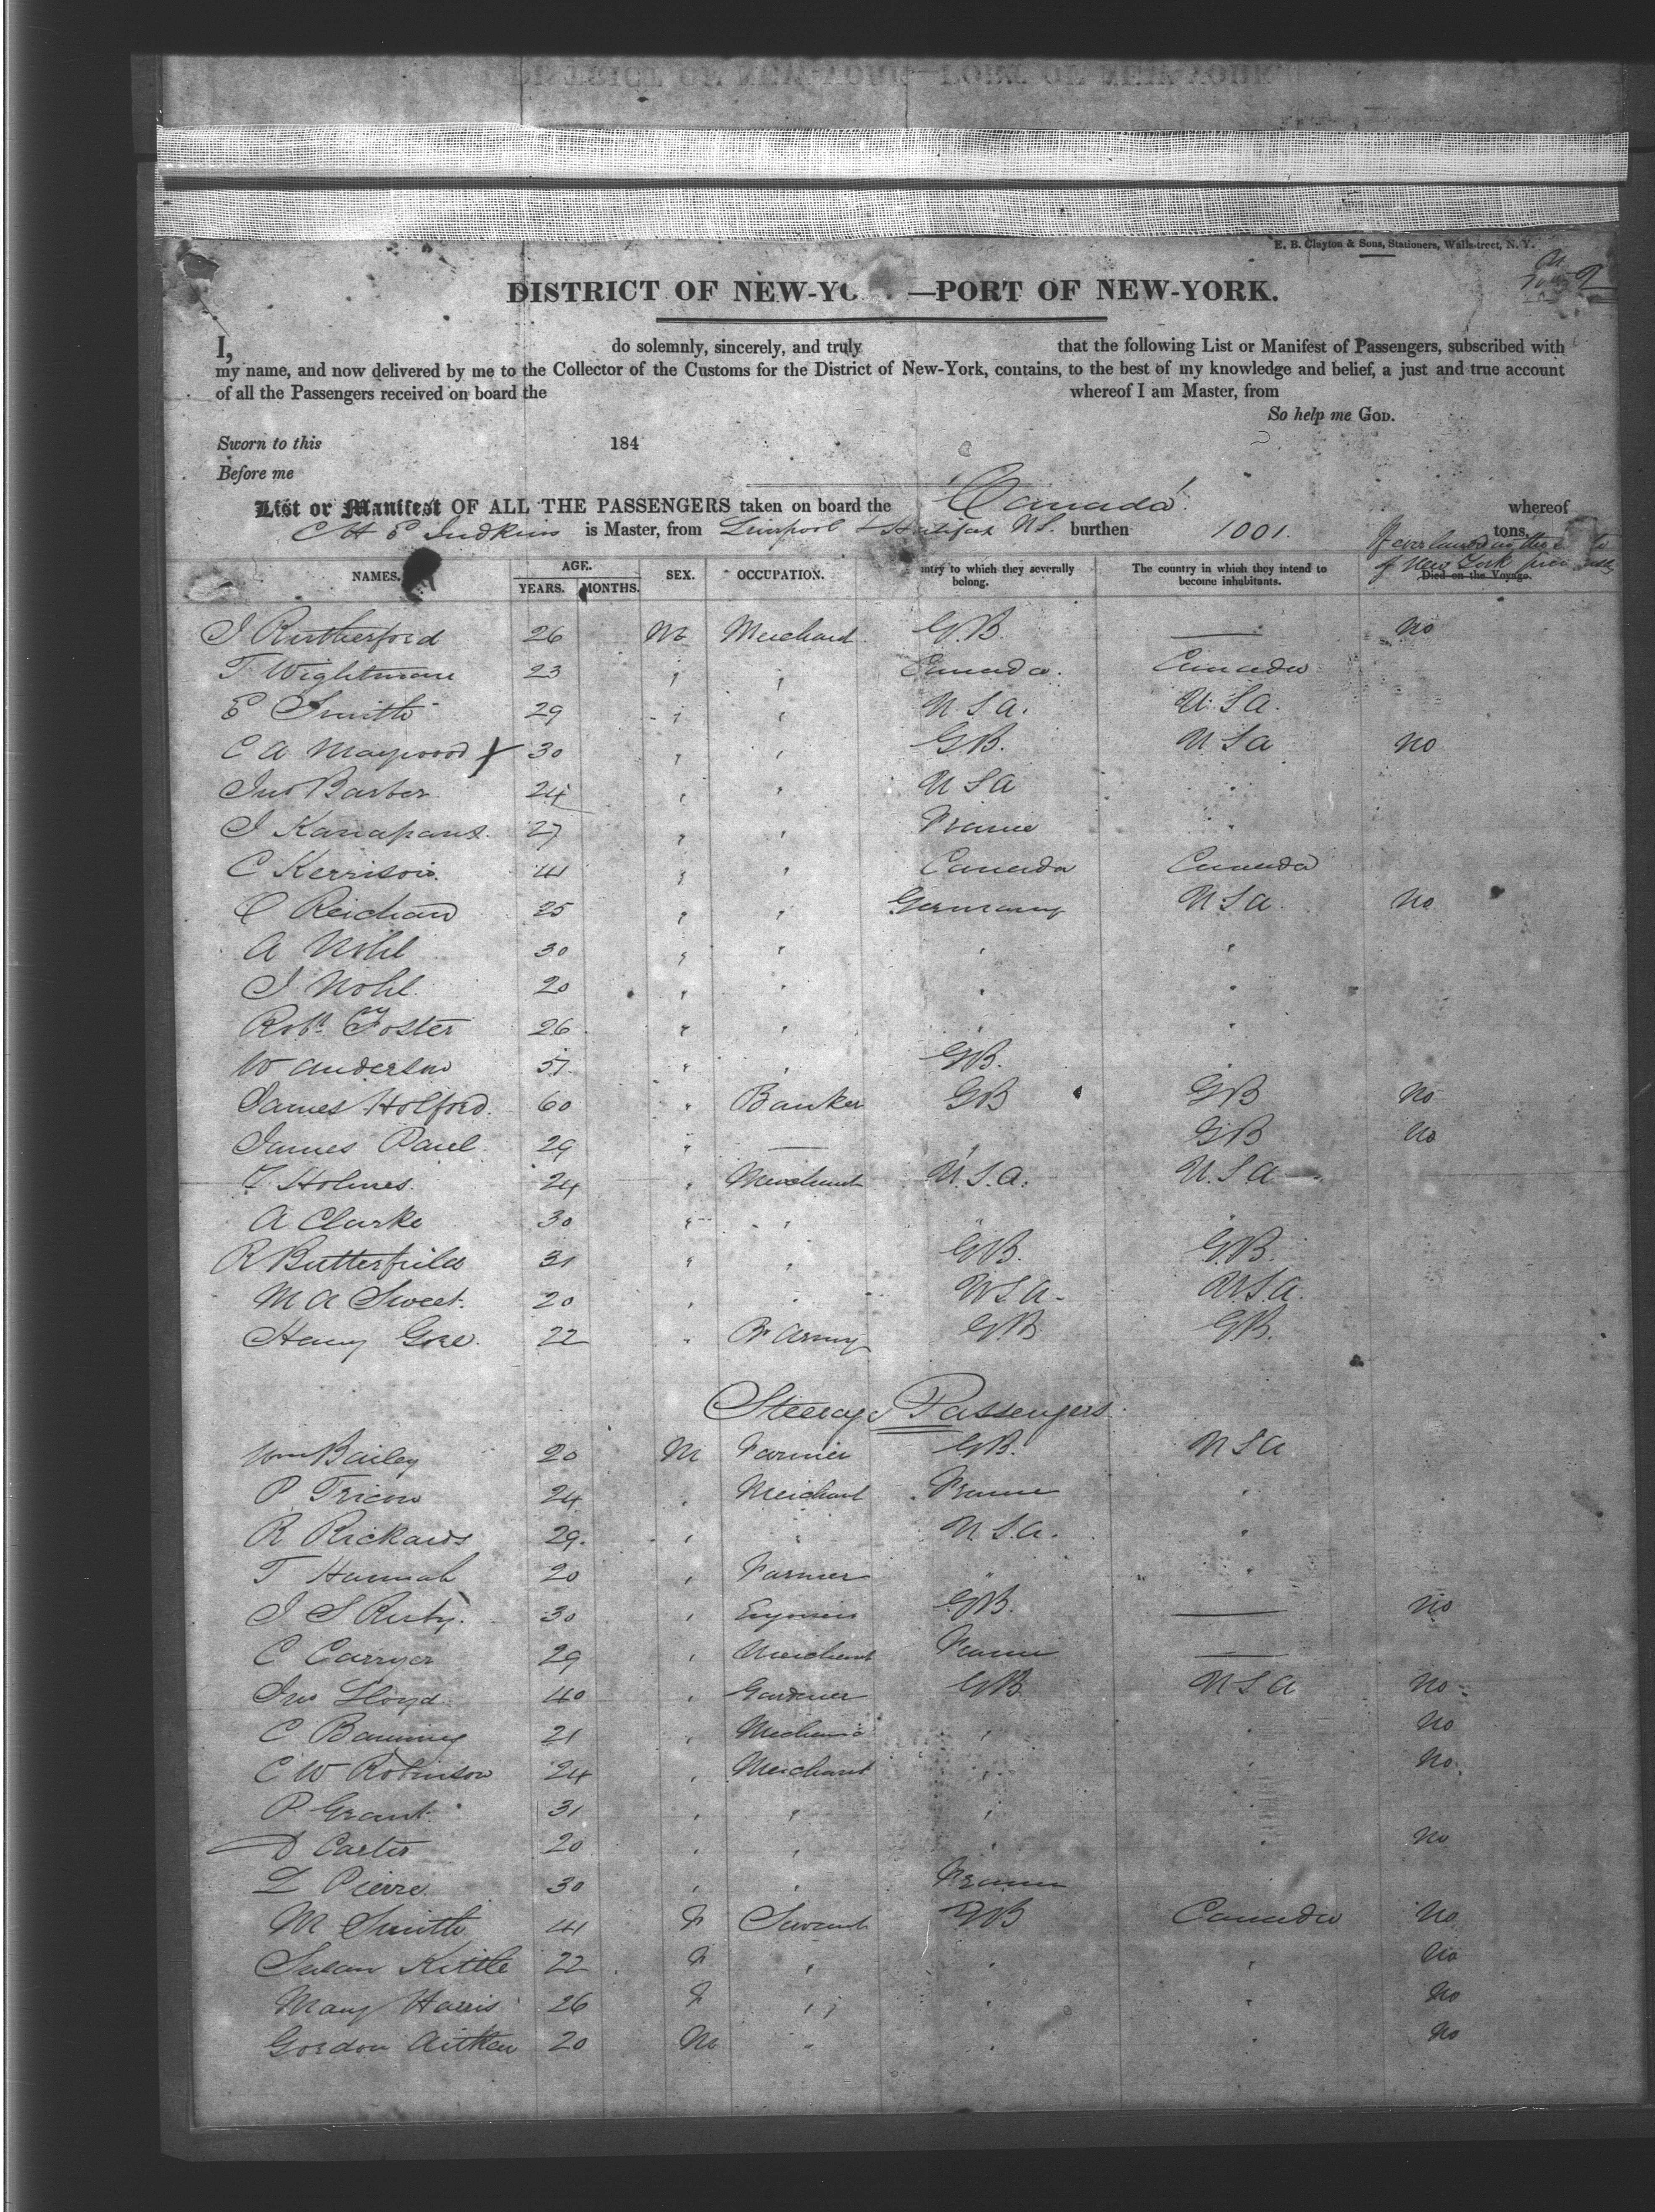 E. B. Clayton & Sons, Stationers, Wall-street, N. Y.
DISTRICT OF NEW-YO —PORT OF NEW-YORK.
I, do solemnly, sincerely, and truly that the following List or Manifest of Passengers, subscribed with
my name, and now delivered by me to the Collector of the Customs for the District of New-York, contains, to the best of my knowledge and belief, a just and true account
of all the Passengers received on board the whereof I am Master, from
So help me GOD.
Sworn to this 184
Before me
List or Manifest OF ALL THE PASSENGERS taken on board the Canada whereof
C H E Judkins is Master, from Liverpool & Halifax NS. burthen 1001. tons,
of New York
NAMES. AGE. SEX. OCCUPATION. ntry to which they severally belong. The country in which they intend to become inhabitants. Died on the Voyage.
YEARS. MONTHS.
J Rutherford 26 M Merchant G.B. — No
T Wightman 23 " " Canada. Canada
E Smith 29 " " U S A. U. S A.
C A Maywood x 30 " " G.B. U S A No
Jno Barber 24 " " U S A "
J Kanapaux 27 " " France "
C Kerrison 41 " " Canada Canada
C Reichard 25 " " Germany U S A No
A Nohl 30 " " " "
J Nohl 20 " " " "
Robt Foster 26 " " " "
W Anderson 57 " " GB. "
James Holford. 60 " Banker GB GB No
James Paul 29 " — " GB No
T Holmes. 24 " Merchant U.S.A. U.S A
A Clarke 30 " " " "
R Butterfield 31 " " GB. GB.
M A Sweet. 20 " " U S A. U.S.A.
Henry Gore. 22 " Br Army GB GB.
Steerage Passengers
Wm Bailey 20 M Farmer GB. U S A
P. Tricou 24 " Merchant France "
R Rickards 29. " " U S. A. "
T Hannah 20 " Farmer " "
J S Ruby. 30 " GB. — No
C Carryer 29 " Merchant France —
Jno Lloyd 40 " Gardener GB U S A No
C Banning 21 " Mechanic " " No
C W Robinson 24 " Merchant " " No.
P Grant 31 " " " "
D Carter 20 " " " " No
L Pierre. 30 " " France
M Smith 41 F Servant GB Canada No
Susan Kittle 22 F " " " No
Mary Harris 26 F " " " No
Gordon Aitken 20 M " " " No